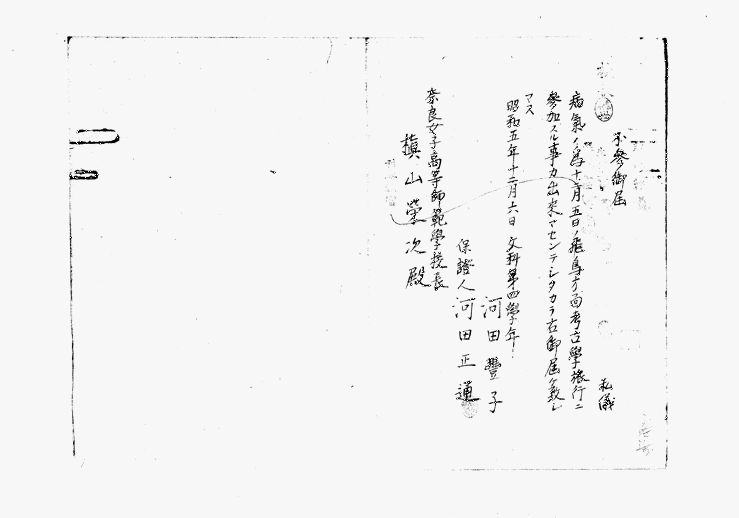 不參御届
私儀
病氣ノ爲十二月五日ノ飛鳥方面考古學旅行ニ
參加スル事カ出來マセンデシタカラ右御届ケ致シ
マス
昭和五年十二月六日 文科第四學年
河田豐子
保證人 河田正通
奈良女子高等師範學校長
槇山榮次殿